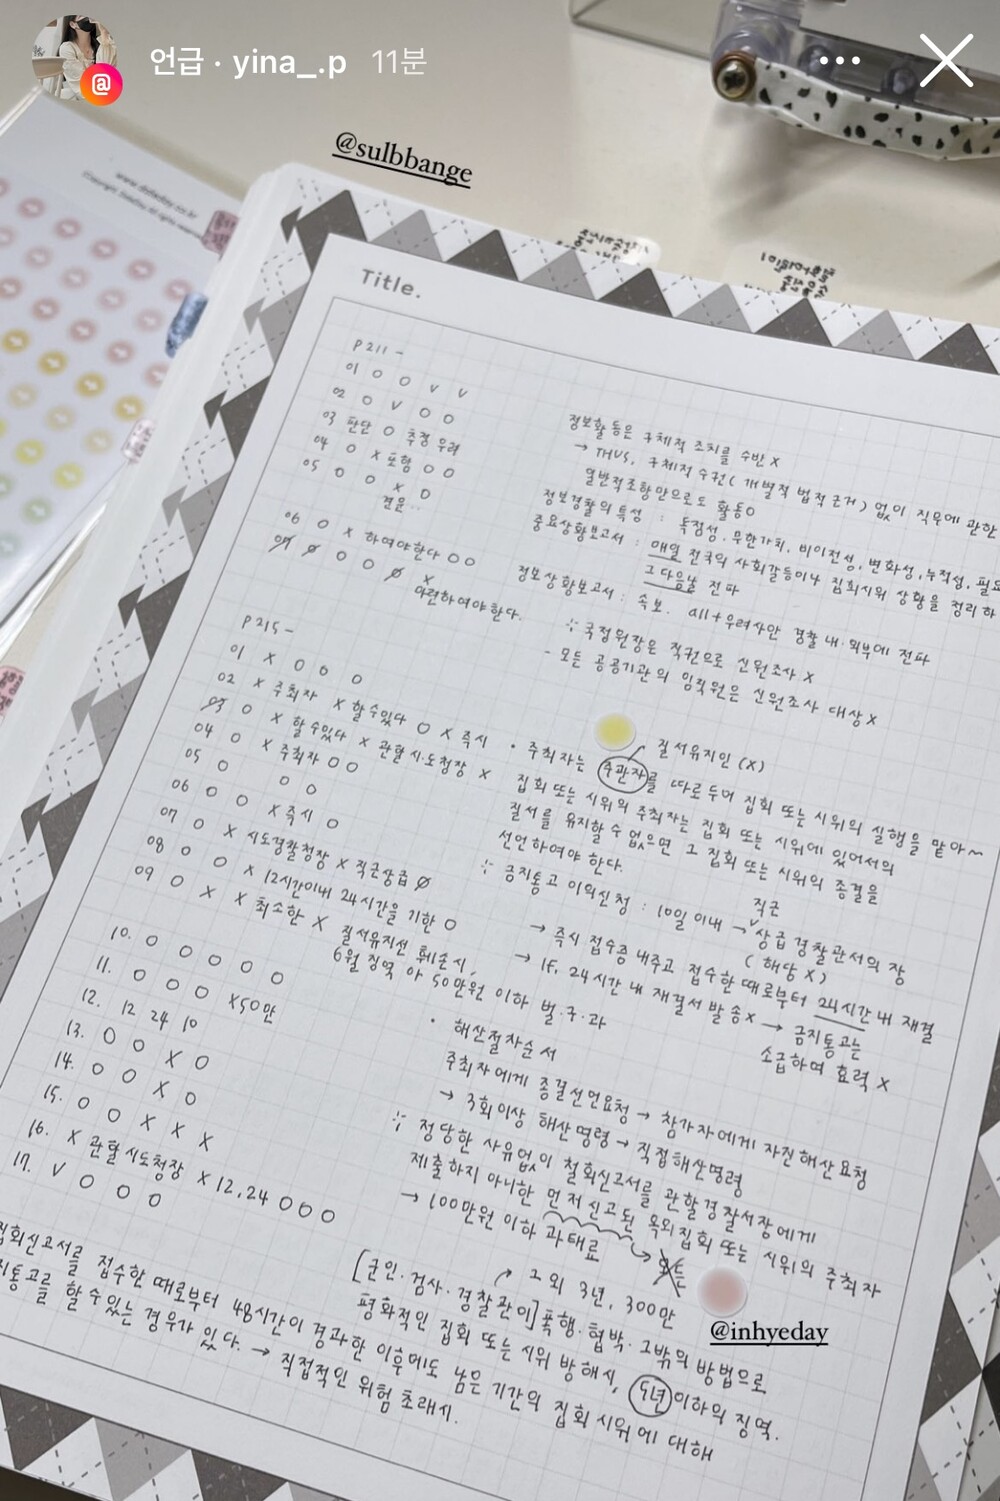 언급 · yina_.p 11분
@sulbbange
www.daileday.co.kr
Title.
P 211 -
01 O O V V
02 O V O O
03 판단 O 추정 우려
04 O X 포함 O O
05 O O X O
결문..
06 O X 하여야한다 O O
07 O O O O X
마련하여야한다.
P 215 -
01 X O O O
02 X 주최자 X 할수있다 O X 즉시
03 O X 할수있다 X 관할시·도청장 X
04 O X 주최자 O O
05 O O O
06 O O X 즉시 O
07 O X 시도경찰청장 X 직근상급 O
08 O O X 12시간이내 24시간을 기한 O
09 O X X 최소한 X 질서유지선 훼손시,
6월 징역 or 50만원 이하 벌·구·과
10. O O O O O
11. O O O X50만
12. 12 24 10
13. O O X O
14. O O X O
15. O O X X X
16. X 관할 시도청장 X 12, 24 O O O
17. V O O O
집회신고서를 접수한 때로부터 48시간이 경과한 이후에도 남은 기간의 집회시위에 대해
금지통고를 할 수 있는 경우가 있다. → 직접적인 위험 초래시.
정보활동은 구체적 조치를 수반 X
→ THUS, 구체적 수권( 개별적 법적근거) 없이 직무에 관한
일반적조항만으로도 활동O
정보경찰의 특성 : 독점성, 무한가치, 비이전성, 변화성, 누적성, 필요
중요상황보고서 : 매일 전국의 사회갈등이나 집회시위 상황을 정리하
그 다음날 전파
정보상황보고서 : 속보. all + 우려사안 경찰 내·외부에 전파
∵ 국정원장은 직권으로 신원조사 X
- 모든 공공기관의 임직원은 신원조사 대상 X
• 주최자는 주관자를 따로 두어 집회 또는 시위의 실행을 맡아~
질서유지인 (X)
집회 또는 시위의 주최자는 집회 또는 시위에 있어서의
질서를 유지할 수 없으면 그 집회 또는 시위의 종결을
선언하여야 한다.
∵ 금지통고 이의신청 : 10일 이내 → 직근 상급 경찰관서의 장
( 해당 X )
→ 즉시 접수증 내주고 접수한 때로부터 24시간 내 재결
→ If, 24시간 내 재결서 발송 X → 금지통고는
소급하여 효력 X
• 해산절차순서
주최자에게 종결선언요청 → 참가자에게 자진해산요청
→ 3회이상 해산명령 → 직접해산명령
∵ 정당한 사유없이 철회신고서를 관할경찰서장에게
제출하지 아니한 먼저신고된 옥외집회 또는 시위의 주최자
→ 100만원 이하 과태료 → 모든
그 외 3년, 300만
[군인·검사·경찰관이] 폭행·협박·그밖의 방법으로
평화적인 집회 또는 시위 방해시, 5년 이하의 징역.
@inhyeday